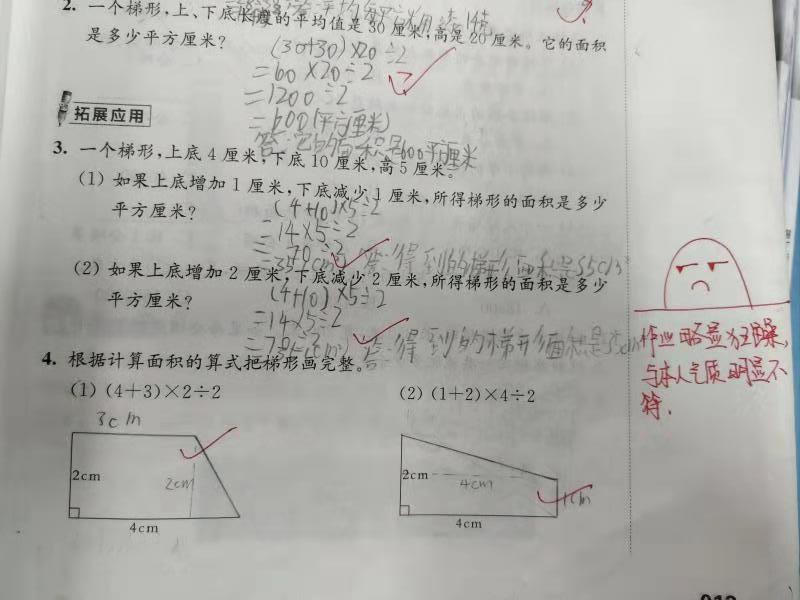 2. 一个梯形,上、下底长度的平均值是30厘米,高是20厘米。它的面积
是多少平方厘米?
(30+30)×20÷2
=60×20÷2
=1200÷2
=600(平方厘米)
答:它的面积是600平方厘米
拓展应用
3. 一个梯形,上底4厘米,下底10厘米,高5厘米。
(1) 如果上底增加1厘米,下底减少1厘米,所得梯形的面积是多少
平方厘米?
(4+10)×5÷2
=14×5÷2
=70÷2
答:得到的梯形面积是35cm²
(2) 如果上底增加2厘米,下底减少2厘米,所得梯形的面积是多少
平方厘米?
(4+10)×5÷2
=14×5÷2
答:得到的梯形面积是35cm
4. 根据计算面积的算式把梯形画完整。
(1) (4+3)×2÷2
(2) (1+2)×4÷2
3cm
2cm
2cm
4cm
2cm
4cm
1cm
4cm
作业略显狂躁,
与本人气质明显不
符.